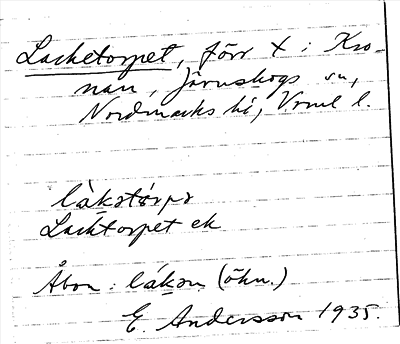 Lacketorpet, förr t i Kro-
nan, Järnskogs sn,
Nordmarks hd, Vrml l.
làkstórpə
Lacktorpet ek
Åbon: lákən (ökn.)
E. Andersson 1935.